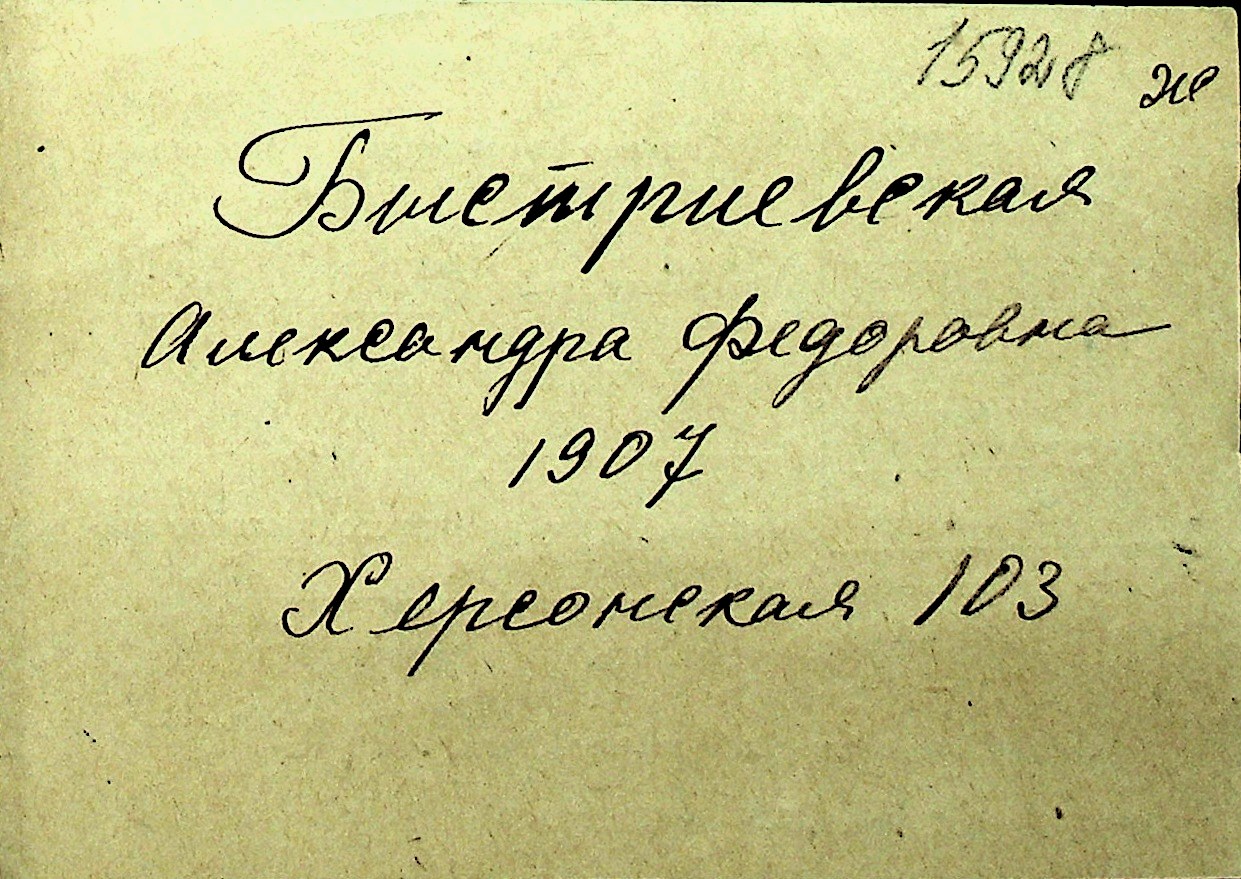 15928 ж
Быстриевская
Александра Федоровна
1907
Херсонская 103